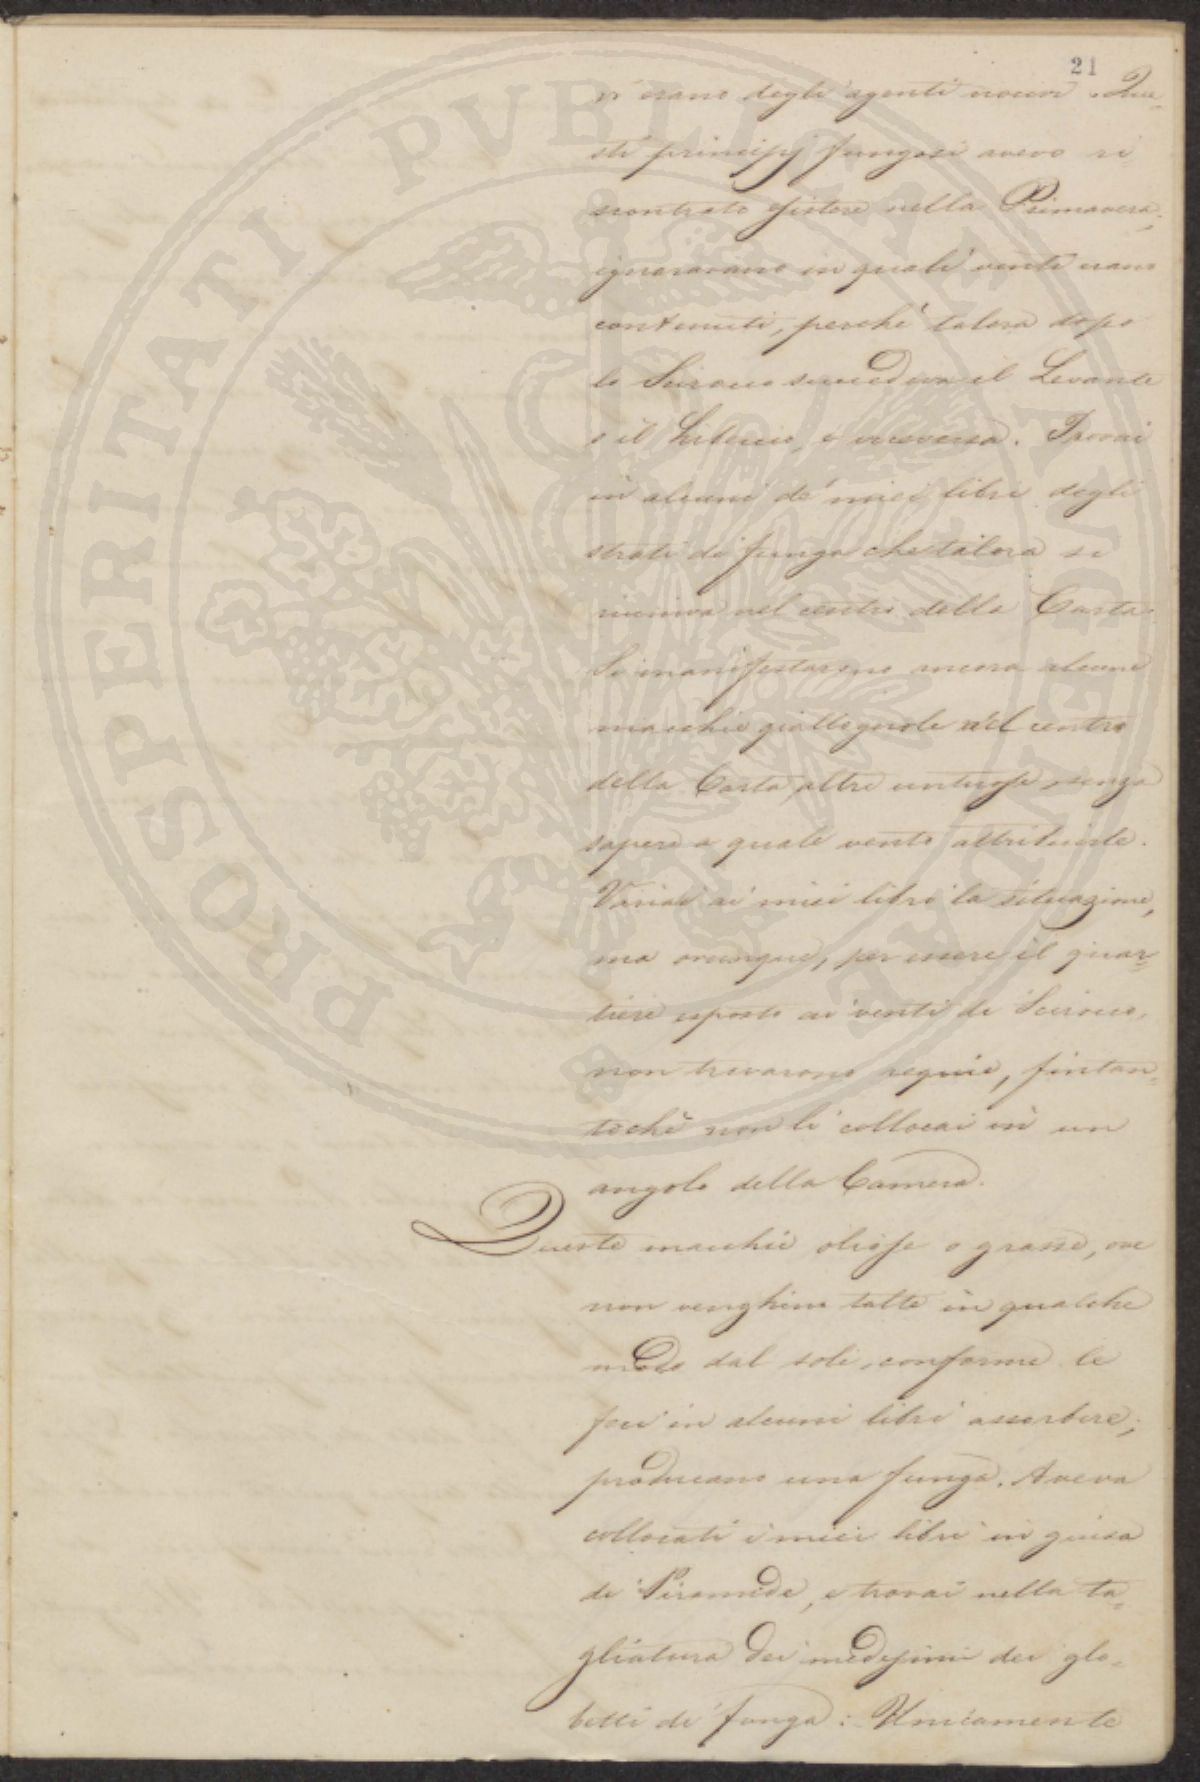 21
vi erano degli agenti nocivi. Que=
sti principj fungosi avevo ri
scontrato esistere nella Primavera,
ignoravano in quali venti erano
contenuti, perchè talora dopo
lo Sciroco succedeva il Levante
o il Libeccio, o viceversa. Trovai
in alcuni de' miei libri degli
strati di funga che talora si
riuniva nel centro della Carta.
Si manifestarono ancora alcune
macchie giallognole nel centro
della Carta, altre untuose, senza
sapere a quale vento attribuirle.
Variai ai miei libri la situazione,
ma ovunque, per essere il quar=
tiere esposto ai venti di Sciroco,
non trovarono requie, fintan=
tochè non li collocai in un
angolo della Camera.
Queste macchie oliose o grasse, ove
non venghino tolte in qualche
modo dal sole, conforme le
feci in alcuni libri assorbire,
producano una funga. Aveva
collocati i miei libri in guisa
di Piramide, e trovai nella ta=
gliatura dei medesimi dei glo=
betti di funga: Unicamente
PROSPERITATI PUBLICAE AUGENDAE